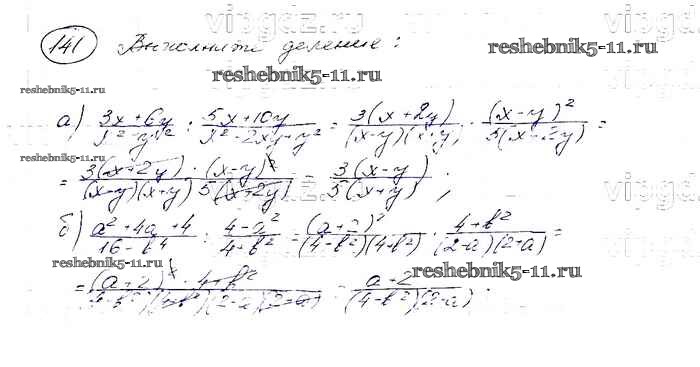 141 Выполните деление:
reshebnik5-11.ru
reshebnik5-11.ru
reshebnik5-11.ru
а) (3x + 6y)/(x² - y²) : (5x + 10y)/(x² - 2xy + y²) = 3(x + 2y)/((x-y)(x+y)) · (x-y)²/(5(x+2y)) =
reshebnik5-11.ru
= (3(x+2y) · (x-y)²)/((x-y)(x+y) 5(x+2y)) = 3(x-y)/(5(x+y)) ;
reshebnik5-11.ru
б) (a² + 4a + 4)/(16 - b⁴) : (4 - a²)/(4 + b²) = (a+2)²/((4-b²)(4+b²)) · (4+b²)/((2-a)(2+a)) =
reshebnik5-11.ru
reshebnik5-11.ru
= ((a+2)² · 4+b²)/((4-b²)(4+b²)(2-a)(2+a)) = (a+2)/((4-b²)(2-a)) .